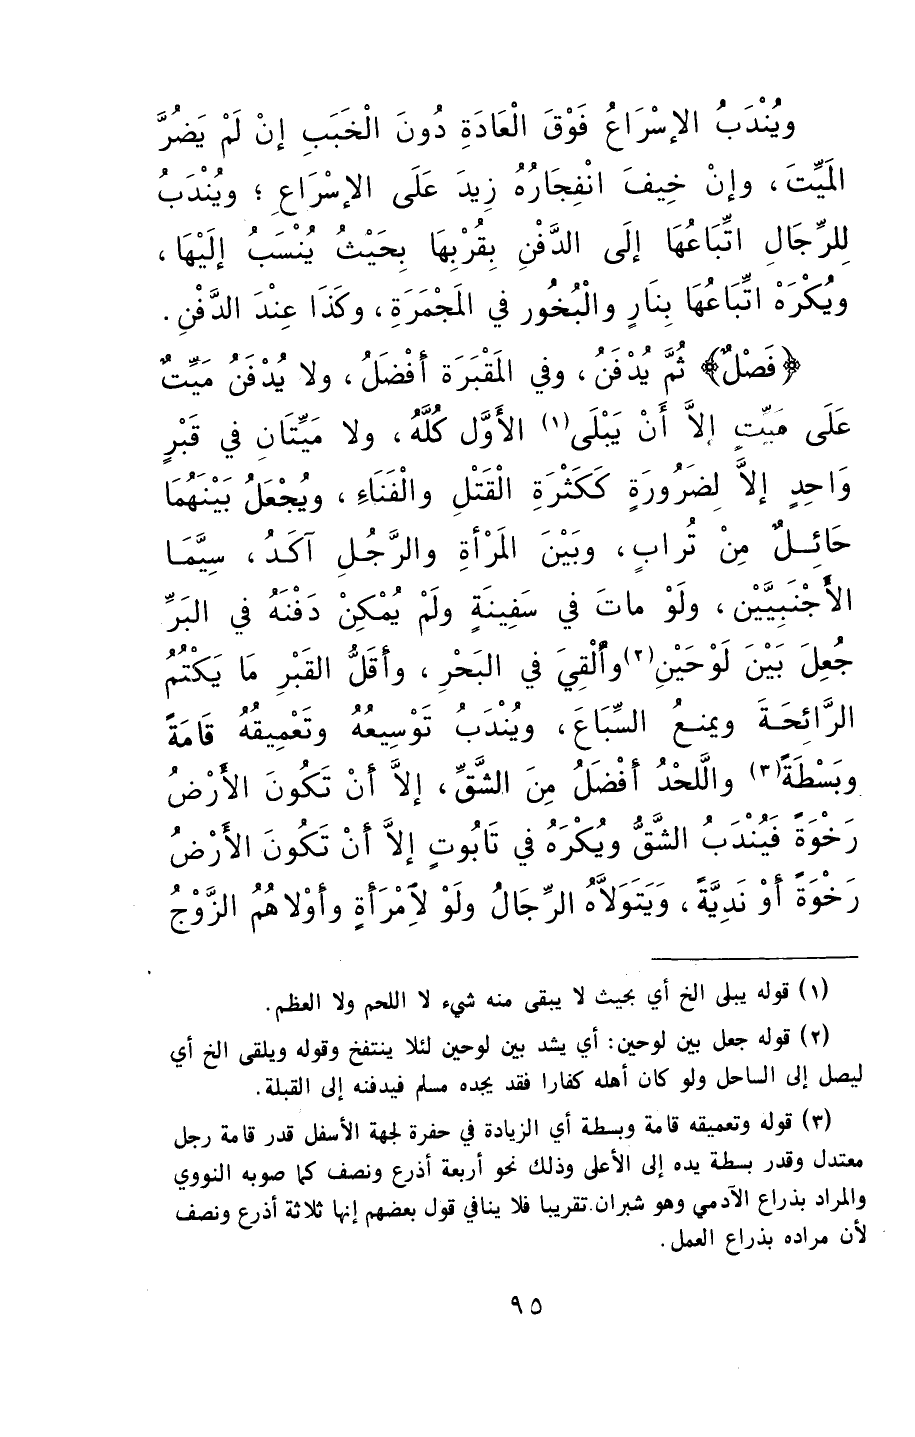 ويُنْدَبُ الإسْرَاعُ فَوْقَ الْعَادَةِ دُونَ الْخَبَبِ إنْ لَمْ يَضُرَّ
المَيِّتَ، وإنْ خِيفَ انْفِجَارُهُ زِيدَ عَلَى الإسْرَاعِ ؛ ويُنْدَبُ
لِلرِّجَالِ اتِّبَاعُهَا إلَى الدَّفْنِ بِقُرْبِهَا بِحَيْثُ يُنْسَبُ إلَيْهَا،
ويُكْرَهْ اتِّبَاعُهَا بِنَارٍ والْبُخُورِ في المَجْمَرَةِ، وكَذَا عِنْدَ الدَّفْنِ.
﴿فَصْلٌ﴾ ثُمَّ يُدْفَنُ، وفي المَقْبَرَةِ أفْضَلُ، ولا يُدْفَنُ مَيِّتٌ
عَلَى مَيِّتٍ إلاَّ أنْ يَبْلَى(١) الأوَّلُ كُلُّهُ، ولا مَيِّتَانِ في قَبْرٍ
وَاحِدٍ إلاَّ لِضَرُورَةٍ كَكَثْرَةِ الْقَتْلِ والْفَنَاءِ، ويُجْعَلُ بَيْنَهُمَا
حَائِلٌ مِنْ تُرابٍ، وبَيْنَ المَرْأةِ والرَّجُلِ آكَدُ، سِيَّمَا
الأَجْنَبِيَّيْنِ، ولَوْ ماتَ في سَفِينَةٍ ولَمْ يُمْكِنْ دَفْنُهُ في البَرِّ
جُعِلَ بَيْنَ لَوْحَيْنِ(٢) وأُلْقِيَ في البَحْرِ، وأقَلُّ القَبْرِ مَا يَكْتُمُ
الرَّائِحَةَ ويمنعُ السِّبَاعَ، ويُنْدَبُ تَوْسِيعُهُ وتَعْمِيقُهُ قَامَةً
وبَسْطَةً(٣) والَّلحْدُ أفْضَلُ مِنَ الشَّقِّ، إلاَّ أنْ تَكُونَ الأَرْضُ
رَخْوَةً فَيُنْدَبُ الشَّقُّ ويُكْرَهُ في تَابُوتٍ إلاَّ أنْ تَكُونَ الأَرْضُ
رَخْوَةً أوْ نَدِيَّةً، وَيَتَوَلاَّهُ الرِّجَالُ ولَوْ لاِمْرَأةٍ وأوْلاهُمُ الزَّوْجُ
(١) قوله يبلى الخ أي بحيث لا يبقى منه شيء لا اللحم ولا العظم.
(٢) قوله جعل بين لوحين: أي يشد بين لوحين لئلا ينتفخ وقوله ويلقى الخ أي
ليصل إلى الساحل ولو كان أهله كفارا فقد يجده مسلم فيدفنه إلى القبلة.
(٣) قوله وتعميقه قامة وبسطة أي الزيادة في حفرة لجهة الأسفل قدر قامة رجل
معتدل وقدر بسطة يده إلى الأعلى وذلك نحو أربعة أذرع ونصف كما صوبه النووي
والمراد بذراع الآدمي وهو شبران تقريبا فلا ينافي قول بعضهم إنها ثلاثة أذرع ونصف
لأن مراده بذراع العمل.
٩٥